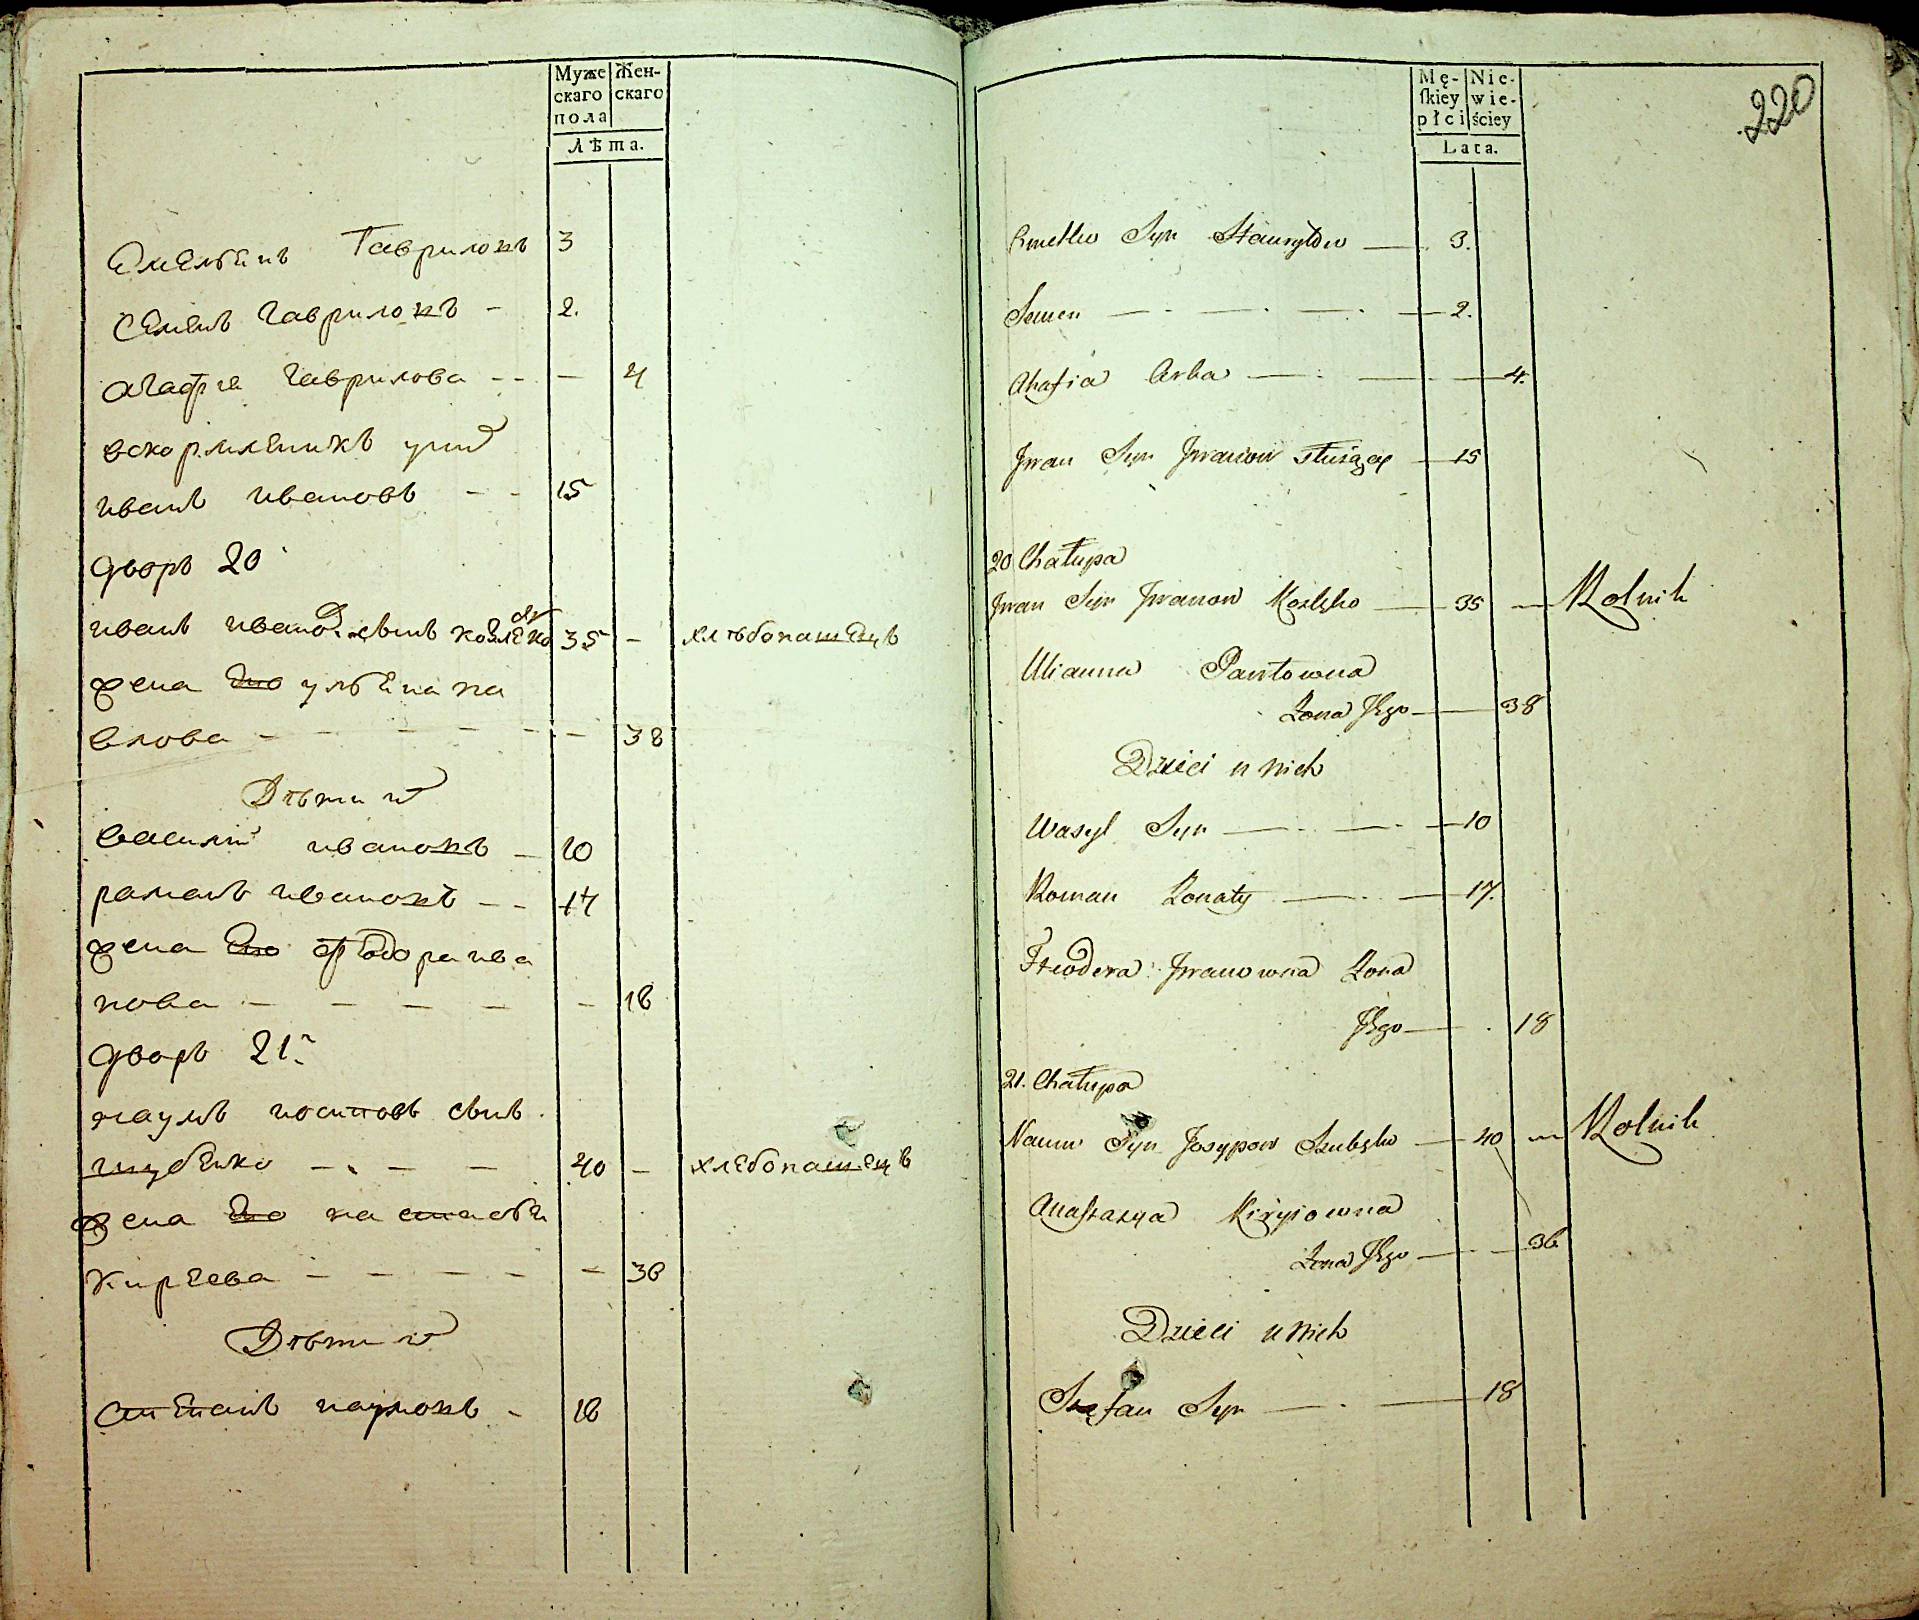 Муже
скаго
пола
Жен-
скаго
Лѣта.
Емельѣнъ Гавриловъ 3
Семенъ Гавриловъ - 2.
Агафiя Гаврилова - - - 4
вскормленикъ у них
иванъ ивановъ - - 15
дворъ 20
иванъ ивановъ сынъ 35 - хлѣбопашецъ
жена Ево ульѣна па
влова - - - - - - 38
Дѣти их
василий ивановъ - 10
раманъ ивановъ - - 17
жена Ево Федора ива
нова - - - - - 18
дворъ 21й
наумъ иосиповъ сынъ
шубенко - - - - 40 - хлебопашецъ
жена Ево настасья
Киреева - - - - - 36
Дѣти их
степанъ наумовъ - 18
Mę-
skiey
płci
Nie-
wie-
ściey
Lata.
220
Syn — 3.
Semen — — — — 2.
Ahafia — — — 4.
Jwan Syn Jwanow służący — 15
20 Chałupa
Jwan Syn Jwanow — 35 — Rolnik
Ulianna Pawłowna
Żona Jego — 38
Dzieci u nich
Wasyl Syn — — — 10
Roman Żonaty — — 17.
Fteodora Jwanowna Żona
Jego — 18
21. Chałupa
Naum Syn Josypow — 40 — Rolnik
Anastazya Kiryiowna
Żona Jego — — 36
Dzieci u nich
Stefan Syn — — 18